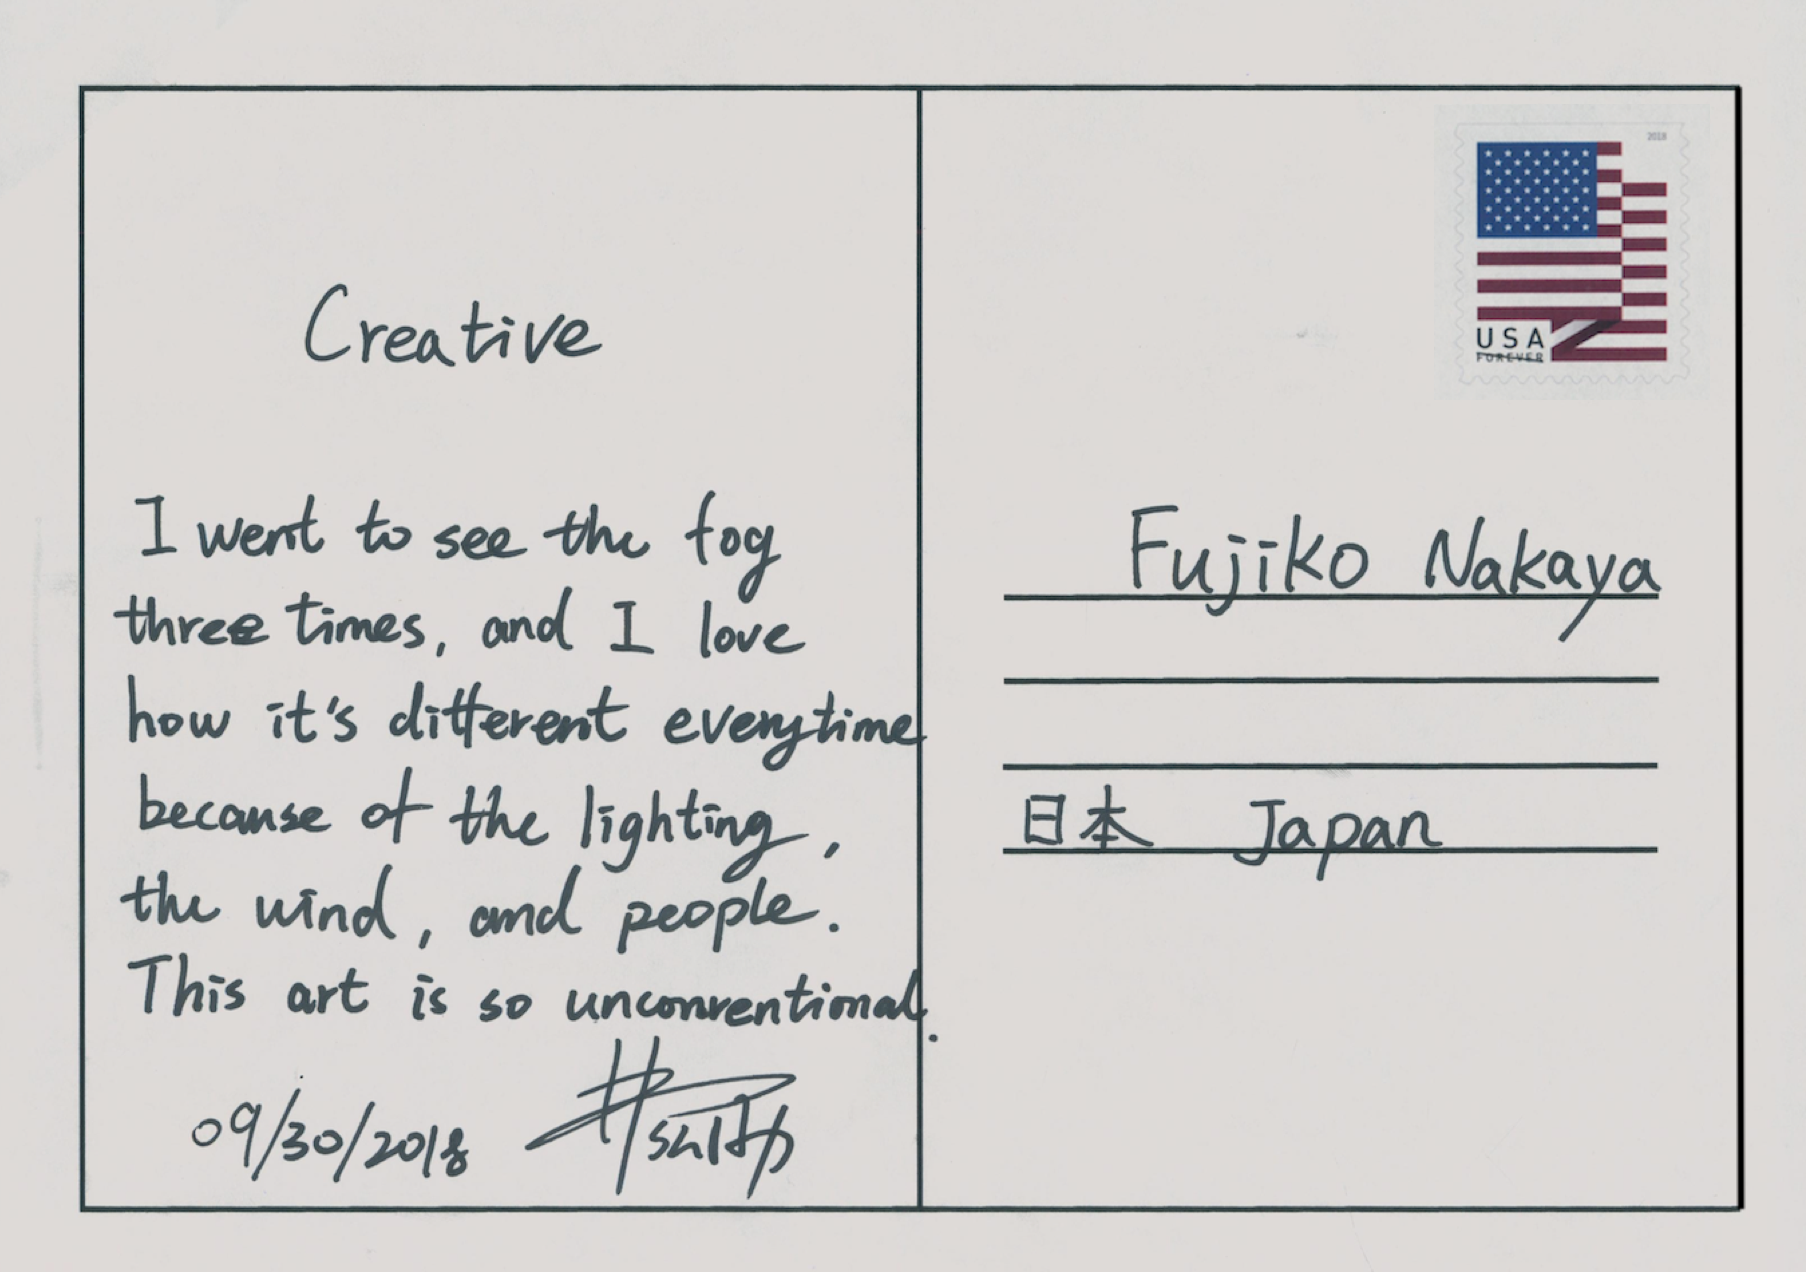 Creative
I went to see the fog
three times, and I love
how it's different everytime
because of the lighting,
the wind, and people.
This art is so unconventional.
09/30/2018
2018
USA
FOREVER
Fujiko Nakaya
日本 Japan